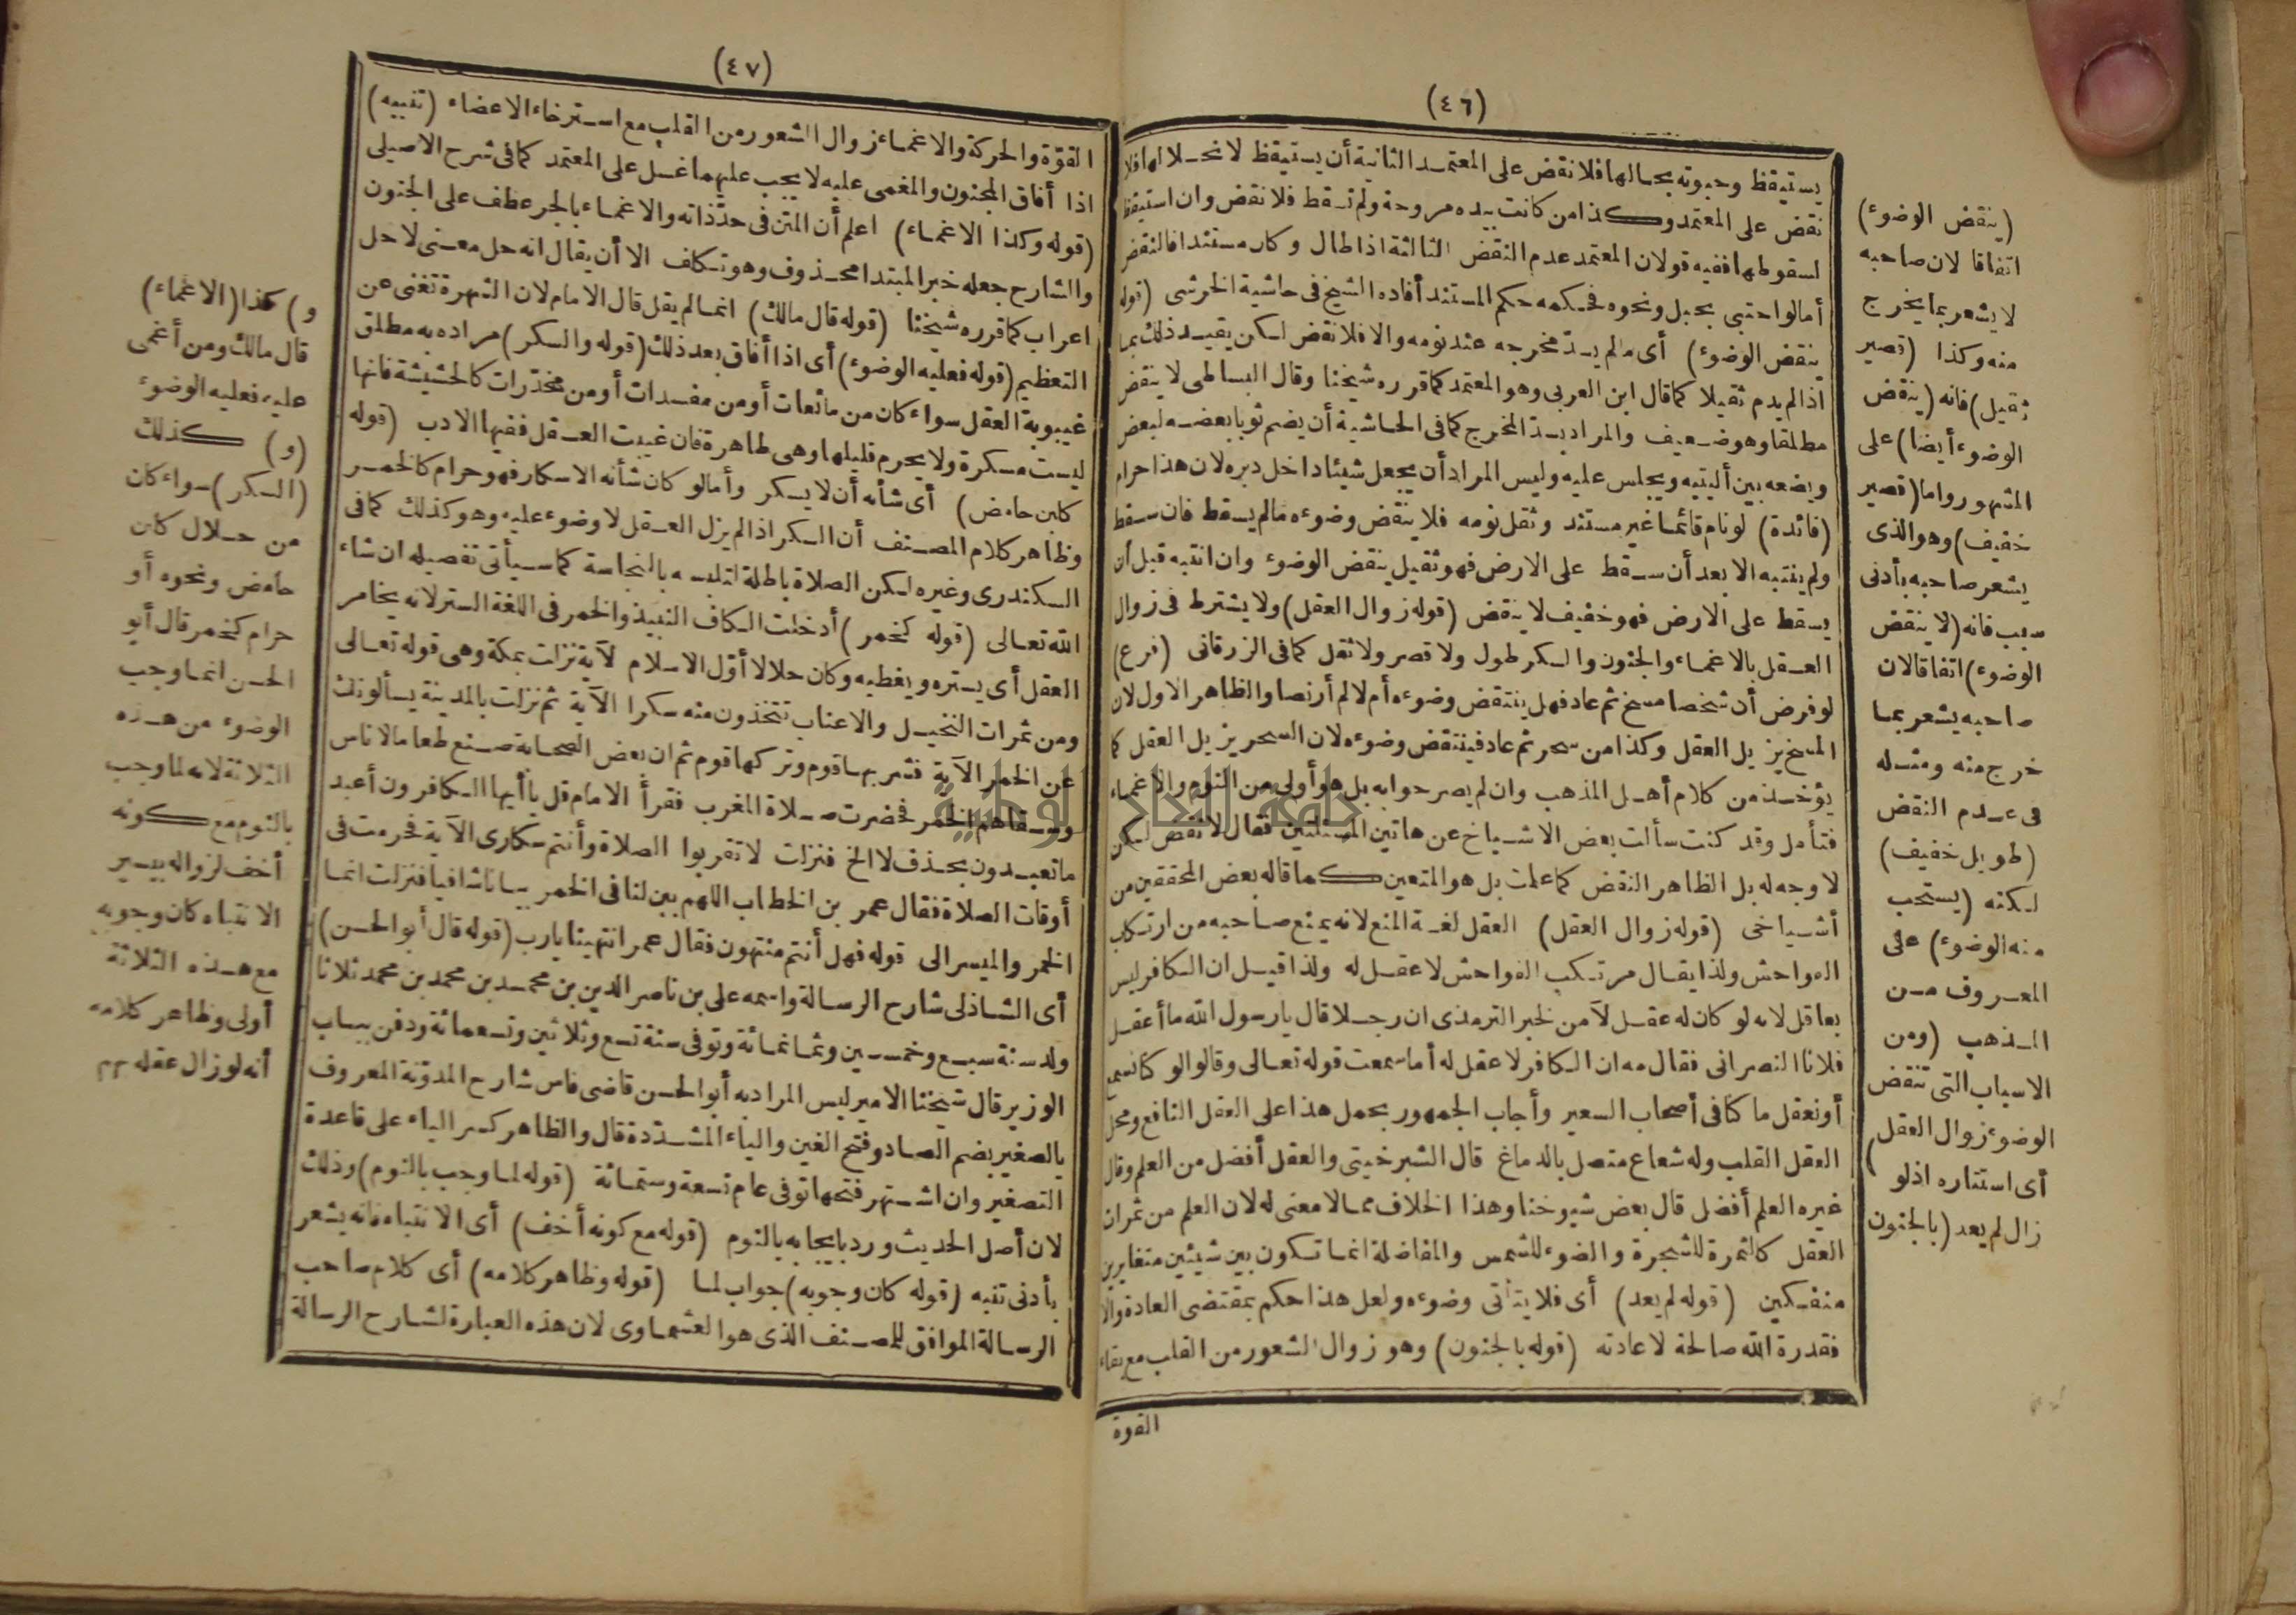 (٤٦)
يستيقظ وحبوته بحالها فلا نقض على المعتمد الثانية أن يستيقظ لانحلالها فلا
نقض على المعتمد وكذا من كانت بيده مروحة ولم تسقط فلا نقض وان استيقظ
لسقوطها ففيه قولان المعتمد عدم النقض الثالثة اذا طال وكان مستندا فالنقض
أما لو احتبى بحبل ونحوه فحكمه حكم المستند أفاده الشيخ فى حاشية الخرشى (قوله
ينقض الوضوء) أى مالم يسدّ مخرجه عند نومه والا فلا نقض لكن يقيد ذلك بما
اذا لم يدم ثقيلا كما قال ابن العربى وهو المعتمد كما قرره شيخنا وقال البساطى لا ينقض
مطلقا وهو ضعيف والمراد بسدّ المخرج كما فى الحاشية أن يضم ثوبا بعضه لبعض
ويضعه بين أليتيه ويجلس عليه وليس المراد أن يجعل شيئا داخل دبره لان هذا حرام
(فائدة) لو نام قائما غير مستند وثقل نومه فلا ينقض وضوءه مالم يسقط فان سقط
ولم ينتبه الا بعد أن سقط على الارض فهو ثقيل ينقض الوضوء وان انتبه قبل أن
يسقط على الارض فهو خفيف لا ينقض (قوله زوال العقل) ولا يشترط فى زوال
العقل بالاغماء والجنون والسكر طول ولا قصر ولا ثقل كما فى الزرقانى (فرع)
لو فرض أن شخصا مسخ ثم عاد فهل ينتقض وضوءه أم لا لم أر نصا والظاهر الاول لان
المسخ يزيل العقل وكذا من سحر ثم عاد فينتقض وضوءه لان السحر يزيل العقل كما
يؤخذ من كلام أهل المذهب وان لم يصرحوا به بل هو أولى من النوم والاغماء
فتأمل وقد كنت سألت بعض الاشياخ عن هاتين المسئلتين فقال لا نقض لكن
لا وجه له بل الظاهر النقض كما علمت بل هو المتعين كما قاله بعض المحققين من
أشياخى (قوله زوال العقل) العقل لغة المنع لانه يمنع صاحبه من ارتكاب
الفواحش ولذا يقال مرتكب الفواحش لا عقل له ولذا قيل ان الكافر ليس
بعاقل لانه لو كان له عقل لآمن لخبر الترمذى ان رجلا قال يا رسول الله ما أعقل
فلانا النصرانى فقال مه ان الكافر لا عقل له أما سمعت قوله تعالى وقالوا لو كنا نسمع
أو نعقل ما كنا فى أصحاب السعير وأجاب الجمهور بحمل هذا على العقل النافع ومحل
العقل القلب وله شعاع متصل بالدماغ قال الشبرخيتى والعقل أفضل من العلم وقال
غيره العلم أفضل قال بعض شيوخنا وهذا الخلاف مما لا معنى له لان العلم من ثمرات
العقل كالثمرة للشجرة والضوء للشمس والمفاضلة انما تكون بين شيئين متغايرين
منفكين (قوله لم يعد) أى فلا يتأتى وضوءه ولعل هذا حكم بمقتضى العادة والا
فقدرة الله صالحة لاعادته (قوله بالجنون) وهو زوال الشعور من القلب مع بقاء
القوة
(ينقض الوضوء)
اتفاقا لان صاحبه
لا يشعر بما يخرج
منه وكذا (قصير
ثقيل) فانه (ينقض
الوضوء أيضا) على
المشهور واما (قصير
خفيف) وهو الذى
يشعر صاحبه بأدنى
سبب فانه (لا ينقض
الوضوء) اتفاقا لان
صاحبه يشعر بما
خرج منه ومثله
فى عدم النقض
(طويل خفيف)
لكنه (يستحب
منه الوضوء) على
المعروف من
المذهب (ومن
الاسباب التى تنقض
الوضوء زوال العقل)
أى استتاره اذ لو
زال لم يعد (بالجنون
(٤٧)
القوّة والحركة والاغماء زوال الشعور من القلب مع استرخاء الاعضاء (تنبيه)
اذا أفاق المجنون والمغمى عليه لا يجب عليهما غسل على المعتمد كما فى شرح الاصيلى
(قوله وكذا الاغماء) اعلم أن المتن فى حدّ ذاته والاغماء بالجر عطف على الجنون
والشارح جعله خبر المبتدا محذوف وهو تكلف الا أن يقال انه حل معنى لا حل
اعراب كما قرره شيخنا (قوله قال مالك) انما لم يقل قال الامام لان الشهرة تغنى عن
التعظيم (قوله فعليه الوضوء) أى اذا أفاق بعد ذلك (قوله والسكر) مراده به مطلق
غيبوبة العقل سواء كان من مائعات أو من مفسدات أو من مخدّرات كالحشيشة فانها
ليست مسكرة ولا يحرم قليلها وهى طاهرة فان غيبت العقل ففيها الادب (قوله
كلبن حامض) أى شأنه أن لا يسكر وأما لو كان شأنه الاسكار فهو حرام كالخمر
وظاهر كلام المصنف أن السكر اذا لم يزل العقل لا وضوء عليه وهو كذلك كما فى
السكندرى وغيره لكن الصلاة باطلة لتلبسه بالنجاسة كما سيأتى تفصيله ان شاء
الله تعالى (قوله كخمر) أدخلت الكاف النبيذ والخمر فى اللغة الستر لانه يخامر
العقل أى يستره ويغطيه وكان حلالا أوّل الاسلام لآية نزلت بمكة وهى قوله تعالى
ومن ثمرات النخيل والاعناب تتخذون منه سكرا الآية ثم نزلت بالمدينة يسألونك
عن الخمر الآية فشربها قوم وتركها قوم ثم ان بعض الصحابة صنع طعاما لاناس
وسقاهم الخمر فحضرت صلاة المغرب فقرأ الامام قل يا أيها الكافرون أعبد
ما تعبدون بحذف لا الخ فنزلت لا تقربوا الصلاة وأنتم سكارى الآية فحرمت فى
أوقات الصلاة فقال عمر بن الخطاب اللهم بين لنا فى الخمر بيانا شافيا فنزلت انما
الخمر والميسر الى قوله فهل أنتم منتهون فقال عمر انتهينا يا رب (قوله قال أبو الحسن)
أى الشاذلى شارح الرسالة واسمه على بن ناصر الدين بن محمد بن محمد بن محمد ثلاثا
ولد سنة سبع وخمسين وثمانمائة وتوفى سنة تسع وثلاثين وتسعمائة ودفن بباب
الوزير قال شيخنا الامير ليس المراد به أبو الحسن قاضى فاس شارح المدوّنة المعروف
بالصغير بضم الصاد وفتح الغين والياء المشدّدة قال والظاهر كسر الياء على قاعدة
التصغير وان اشتهر فتحها توفى عام تسعة وستمائة (قوله لما وجب بالنوم) وذلك
لان أصل الحديث ورد بايجابه بالنوم (قوله مع كونه أخف) أى الانتباه فانه يشعر
بأدنى تنبه (قوله كان وجوبه) جواب لما (قوله وظاهر كلامه) أى كلام صاحب
الرسالة الموافق للمصنف الذى هو العشماوى لان هذه العبارة لشارح الرسالة
و) كذا (الاغماء)
قال مالك ومن أغمى
عليه فعليه الوضوء
(و) كذلك
(السكر) سواء كان
من حلال كلبن
حامض ونحوه أو
حرام كخمر قال أبو
الحسن انما وجب
الوضوء من هذه
الثلاثة لانه لما وجب
بالنوم مع كونه
أخف لزواله بيسير
الانتباه كان وجوبه
مع هذه الثلاثة
أولى وظاهر كلامه
أنه لو زال عقله بهم